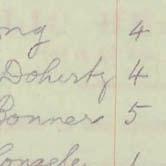 ng 4
Doherty 4
Bonner 5